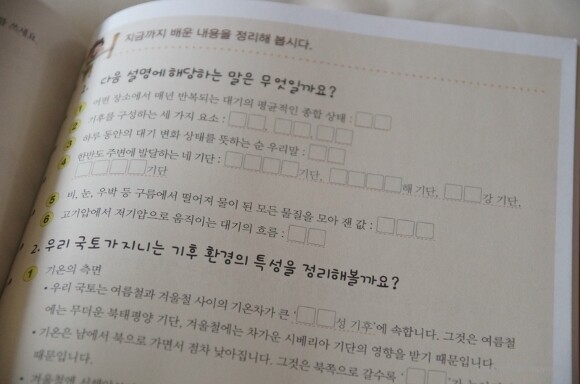 를 쓰세요.
지금까지 배운 내용을 정리해 봅시다.
1. 다음 설명에 해당하는 말은 무엇일까요?
1 어떤 장소에서 매년 반복되는 대기의 평균적인 종합 상태 : □□
2 기후를 구성하는 세 가지 요소 : □□, □□, □□
3 하루 동안의 대기 변화 상태를 뜻하는 순 우리말 : □□
4 한반도 주변에 발달하는 네 기단 : □□□□기단, □□□□해 기단, □□강 기단,
□□□□기단
5 비, 눈, 우박 등 구름에서 떨어져 물이 된 모든 물질을 모아 잰 값 : □□□
6 고기압에서 저기압으로 움직이는 대기의 흐름 : □□
2. 우리 국토가 지니는 기후 환경의 특성을 정리해볼까요?
1 기온의 측면
• 우리 국토는 여름철과 겨울철 사이의 기온차가 큰 '□□성 기후'에 속합니다. 그것은 여름철
에는 무더운 북태평양 기단, 겨울철에는 차가운 시베리아 기단의 영향을 받기 때문입니다.
• 기온은 남에서 북으로 가면서 점차 낮아집니다. 그것은 북쪽으로 갈수록 '□□
때문입니다.
• 겨울철에